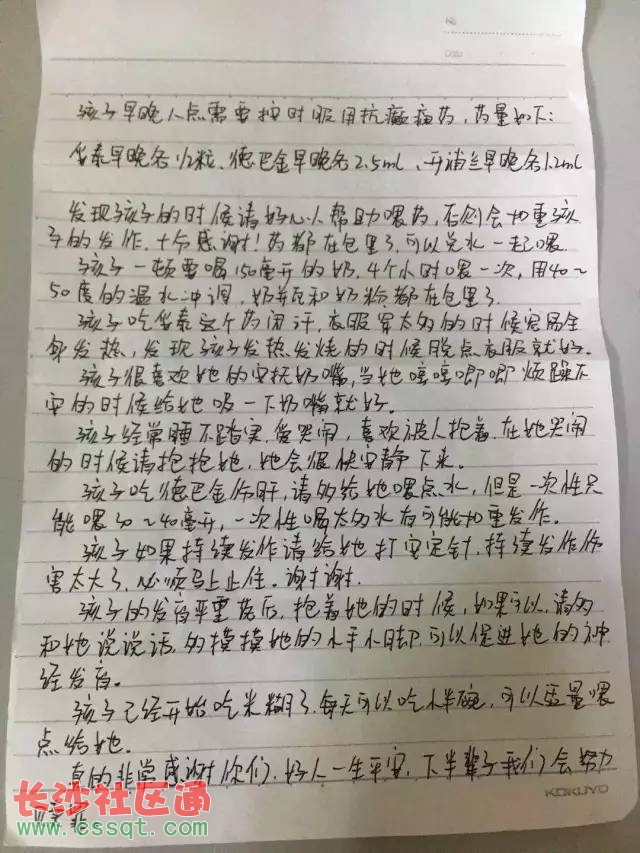 No
Date
孩子早晚八点需要按时服用抗癫痫药，药量如下：
早晚各1/2粒、德巴金早晚各2.5ml、开浦兰早晚各1.2ml
发现孩子的时候请好心人帮助喂药，否则会加重孩
子的发作，十分感谢！药都在包里了，可以兑水一起喂。
孩子一顿要喝150毫升的奶，4个小时喂一次，用40~
50度的温水冲调，奶瓶和奶粉都在包里了。
孩子吃 这个药闭汗，衣服穿太多的时候容易全
身发热，发现孩子发热发烧的时候脱点衣服就好。
孩子很喜欢她的安抚奶嘴，当她嘻嘻唧唧烦躁不
安的时候给她吸一下奶嘴就好。
孩子经常睡不踏实，爱哭闹，喜欢被人抱着，在她哭闹
的时候请抱抱她，她会很快安静下来。
孩子吃德巴金伤肝，请多给她喂点水，但是一次性只
能喂30~40毫升，一次性喝太多水有可能加重发作。
孩子如果持续发作请给她打安定针，持续发作伤
害太大了，必须马上止住。谢谢谢。
孩子的发育严重落后，抱着她的时候，如果可以，请多
和她说说话，多摸摸她的小手小脚，可以促进她的神
经发育。
孩子已经开始吃米糊了，每天可以吃小半碗，可以适量喂
点给她。
真的非常感谢你们，好人一生平安，下半辈子我们会努力
长沙社区通
www.cssqt.com
KOKUYO